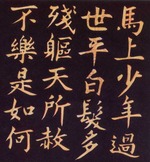 馬上少年過
世平白髮多
殘軀天所赦
不樂是如何